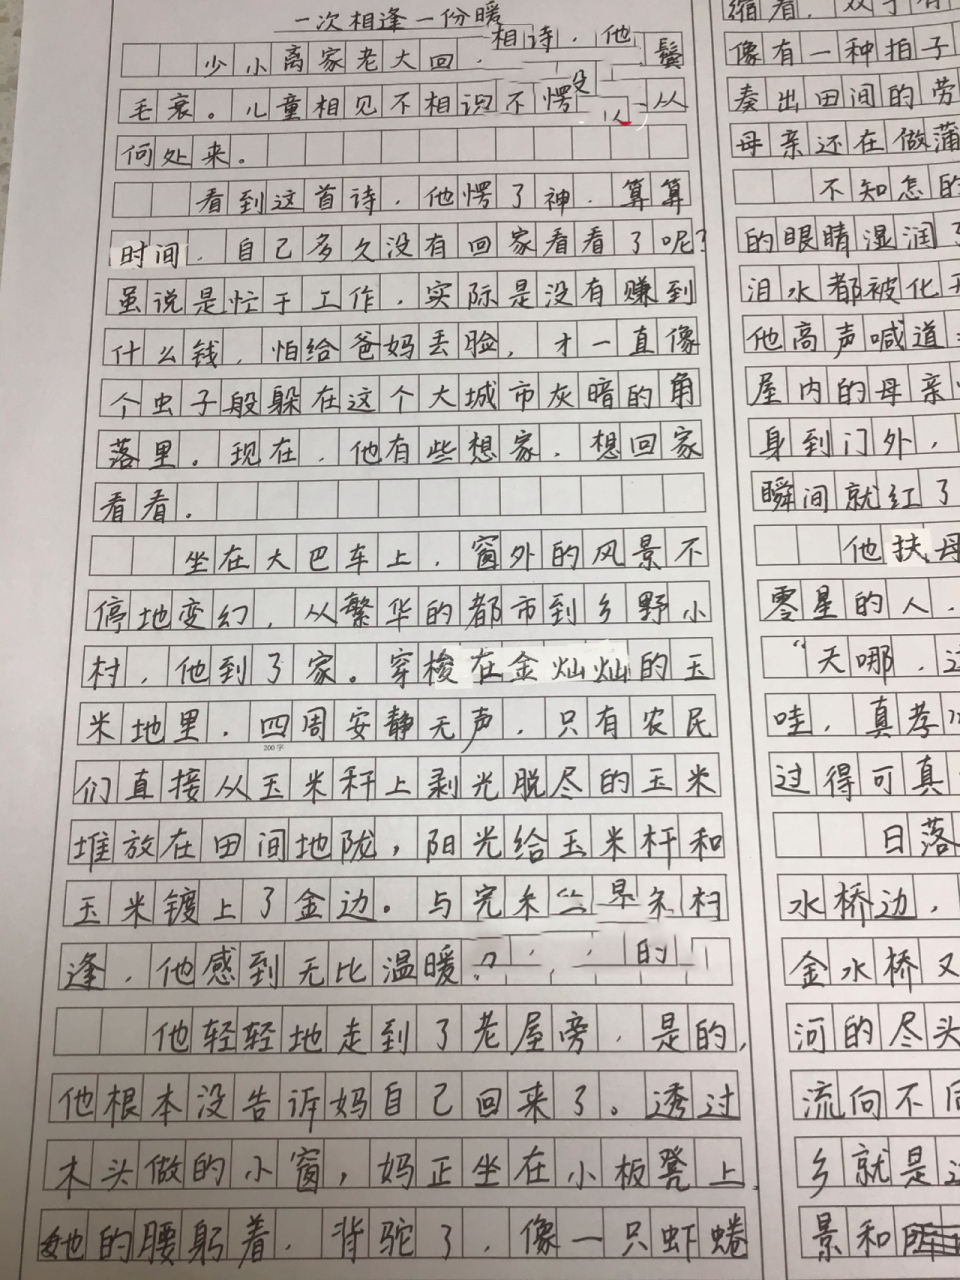 一次相逢一份暖
少小离家老大回.
相诗.他
鬓
毛衰。儿童相见不相识不愣
没
从
何处来。
看到这首诗.他愣了神.算算
时间.自己多久没有回家看看了呢?
虽说是忙于工作.实际是没有赚到
什么钱,怕给爸妈丢脸,才一直像
个虫子般躲在这个大城市灰暗的角
落里。现在.他有些想家.想回家
看看.
坐在大巴车上.窗外的风景不
停地变幻.从繁华的都市到乡野小
村,他到了家。穿梭在金灿灿的玉
米地里.四周安静无声.只有农民
200字
们直接从玉米秆上剥光脱尽的玉米
堆放在田间地陇,阳光给玉米杆和
玉米镀上了金边。与完
村
逢.他感到无比温暖
的
他轻轻地走到了老屋旁.是的,
他根本没告诉妈自己回来了。透过
木头做的小窗,妈正坐在小板凳上.
她的腰躬着.背驼了.像一只虾蜷
缩着.双手有
像有一种拍子
奏出田间的劳
母亲还在做蒲
不知怎的
的眼睛湿润了
泪水都被化开
他高声喊道
屋内的母亲
身到门外,
瞬间就红了
他扶母
零星的人.
“天哪.这
哇,真孝
过得可真
日落
水桥边,
金水桥又
河的尽头
流向不同
乡就是这
景和